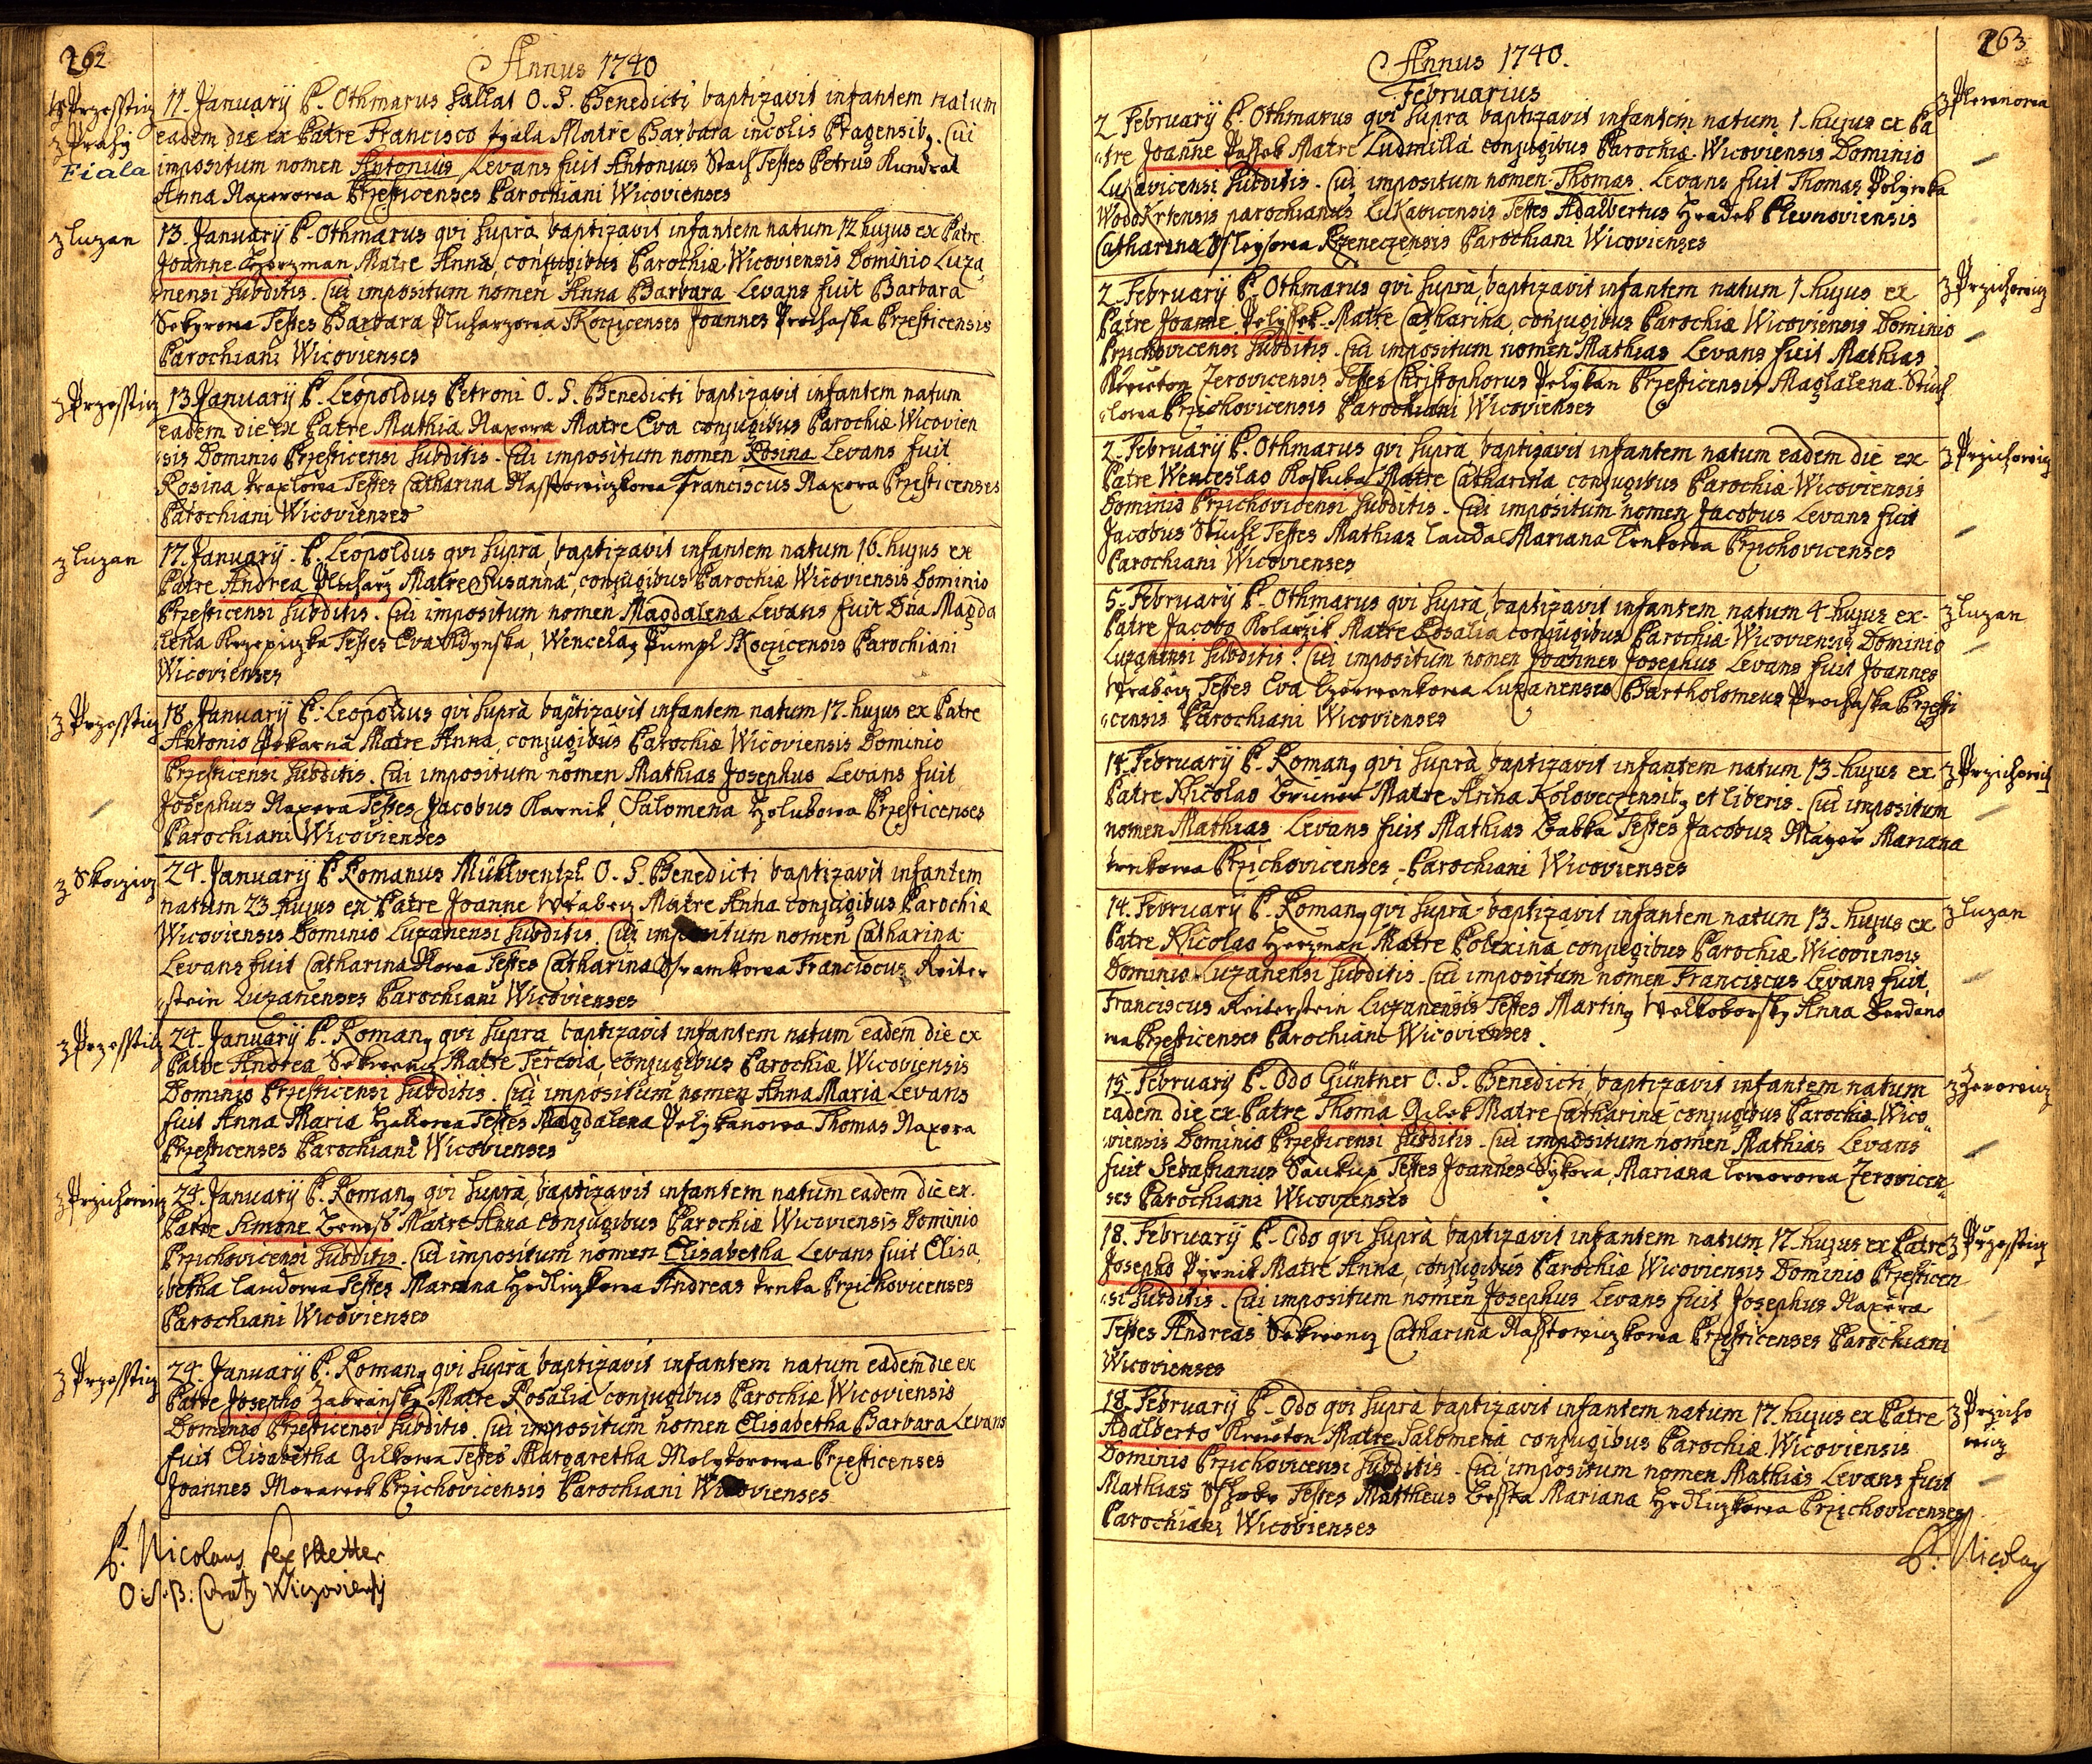 262
Annus 1740
z Przesstiz
z Prahy
Fiala
11. January P. Othmarus Sallat O. S. Benedicti baptizavit infantem natum
eadem die ex Patre Francisco Fiala Matre Barbara incolis Pragensib9. Cui
impositum nomen Antonius Levans fuit Antonius Testes Petrus Kundrat
Anna Naxerowa Przesticenses Parochiani Wicovienses
z Luzan
13. January P. Othmarus qvi supra baptizavit infantem natum 12 hujus ex Patre
Joanne Herzman Matre Anna, conjugibus Parochiæ Wicoviensis Dominio Luza
nensi subditis. Cui impositum nomen Anna Barbara Levans fuit Barbara
Testes Barbara Pluharzowa Skoczicenses Joannes Prochaska Przesticensis
Parochiani Wicovienses
z Przesstiz
13 January P. Leopoldus Petroni O. S. Benedicti baptizavit infantem natum
eadem die ex Patre Mathia Naxera Matre Eva conjugibus Parochiæ Wicovien
sis Dominio Przesticensi subditis. Cui impositum nomen Rosina Levans fuit
Rosina Testes Catharina Franciscus Naxera Przesticenses
Parochiani Wicovienses
z Luzan
17 January. P. Leopoldus qvi supra, baptizavit infantem natum 16. hujus ex
Patre Andrea Pluharz Matre Susanna, conjugibus Parochiæ Wicoviensis Dominio
Przesticensi subditis. Cui impositum nomen Magdalena Levans fuit Dna Magda
lena Testes Eva Wencela9 Pumpl Skoczicensis Parochiani
Wicovienses
z Przesstiz
18. January P. Leopoldus qvi supra baptizavit infantem natum 17. hujus ex Patre
Antonio Pekarna Matre Anna, conjugibus Parochiæ Wicoviensis Dominio
Przesticensi subditis. Cui impositum nomen Mathias Josephus Levans fuit
Josephus Naxera Testes Jacobus Karnik, Salomena Holubowa Przesticenses
Parochiani Wicovienses
z Skoczicz
24. January P. Romanus Mühlwentzl O. S. Benedicti baptizavit infantem
natum 23 hujus ex Patre Joanne Wrabecz Matre Anna conjugibus Parochiæ
Wicoviensis Dominio Luzanensi subditis. Cui impositum nomen Catharina
Levans fuit Catharina Testes Catharina Franciscus Reiter
stein Luzanenses Parochiani Wicovienses
z Przesstiz
24. January P. Roman9 qvi supra baptizavit infantem natum eadem die ex
Patre Andrea Matre Teresia, conjugibus Parochiæ Wicoviensis
Dominio Przesticensi subditis. Cui impositum nomen Anna Maria Levans
fuit Anna Maria Testes Magdalena Pelykanowa Thomas Naxera
Przesticenses Parochiani Wicovienses
z Przichowicz
24. January P. Roman9 qvi supra, baptizavit infantem natum eadem die ex.
Patre Simone Beness Matre Anna conjugibus Parochiæ Wicoviensis Dominio
Przichovicensi subditis. Cui impositum nomen Elisabetha Levans fuit Elisa
betha Laudowa Testes Mariana Hrdliczkowa Andreas Trnka Przichovicenses
Parochiani Wicovienses
z Przesstiz
24. January P. Roman9 qvi supra, baptizavit infantem natum eadem die ex
Patre Josepho Zabransky Matre Rosalia conjugibus Parochiæ Wicoviensis
Dominio Przesticensi subditis. Cui impositum nomen Elisabetha Barbara Levans
fuit Elisabetha Gilkowa Testes Margaretha Przesticenses
Joannes Morawek Przichovicensis Parochiani Wicovienses
P. Nicolaus
O. S. B.
263
Annus 1740.
Februarius
z Plewnowa
2 February P. Othmarus qvi supra baptizavit infantem natum 1. hujus ex Pa
tre Joanne Passek Matre Ludmilla conjugibus Parochiæ Wicoviensis Dominio
subditis. Cui impositum nomen Thomas. Levans fuit Thomas Polywka
Wodokrtensis parochianus Lukavicensis Testes Adalbertus Hradek Plevnoviensis
Catharina Rzeneczensis Parochiani Wicovienses
z Przichowicz
2. February P. Othmarus qvi supra, baptizavit infantem natum 1. hujus ex
Patre Joanne Matre Catharina, conjugibus Parochiæ Wicoviensis Dominio
Przichovicensi subditis. Cui impositum nomen Mathias Levans fuit Mathias
Kreuton Zerovicensis Testes Christophorus Pelykan Przesticensis Magdalena
Przichovicensis Parochiani Wicovienses
z Przichowicz
2. February P. Othmarus qvi supra baptizavit infantem natum eadem die ex
Patre Wenceslao Koskuba Matre Catharina conjugibus Parochiæ Wicoviensis
Dominio Przichovicensi subditis. Cui impositum nomen Jacobus Levans fuit
Jacobus Testes Mathias Lauda Mariana Trnkowa Przichovicenses
Parochiani Wicovienses
z Luzan
5. February P. Othmarus qvi supra, baptizavit infantem natum 4. hujus ex
Patre Jacobo Kolarzik Matre Rosalia conjugibus Parochiæ Wicoviensis Dominio
Luzanensi subditis. Cui impositum nomen Joannes Josephus Levans fuit Joannes
Wrabecz Testes Eva Luzanenses Bartholomeus Prochaska Przesti
censis Parochiani Wicovienses
z Przichowicz
14. February P. Roman9 qvi supra baptizavit infantem natum 13. hujus ex
Patre Nicolao Bruner Matre Anna Koloveczensib9 et liberis. Cui impositum
nomen Mathias Levans fuit Mathias Babka Testes Jacobus Mayer Mariana
Trnkowa Przichovicenses. Parochiani Wicovienses
z Luzan
14. February P. Roman9 qvi supra baptizavit infantem natum 13. hujus ex
Patre Nicolao Herzman Matre Polexina conjugibus Parochiæ Wicoviensis
Dominio Luzanensi subditis. Cui impositum nomen Franciscus Levans fuit
Franciscus Reiterstein Luzanensis Testes Martin9 Anna
Przesticenses Parochiani Wicovienses.
z Zerowicz
15. February P. Odo Güntner O. S. Benedicti baptizavit infantem natum
eadem die ex Patre Thoma Gilek Matre Catharina conjugibus Parochiæ Wico
viensis Dominio Przesticensi subditis. Cui impositum nomen Mathias Levans
fuit Sebastianus Saukup Testes Joannes Sykora, Mariana Zerovicen
ses Parochiani Wicovienses
z Przesstiz
18. February P. Odo qvi supra baptizavit infantem natum 17. hujus ex Patre
Josepho Matre Anna, conjugibus Parochiæ Wicoviensis Dominio Przesticen
si subditis. Cui impositum nomen Josephus Levans fuit Josephus Naxera
Testes Andreas Catharina Przesticenses Parochiani
Wicovienses
z Przicho
wicz
18. February P. Odo qvi supra baptizavit infantem natum 17. hujus ex Patre
Adalberto Kreuton Matre Salomena conjugibus Parochiæ Wicoviensis
Dominio Przichovicensi subditis. Cui impositum nomen Mathias Levans fuit
Mathias Testes Mattheus Mariana Hrdliczkowa Przichovicenses
Parochiani Wicovienses
P. Nicolaus